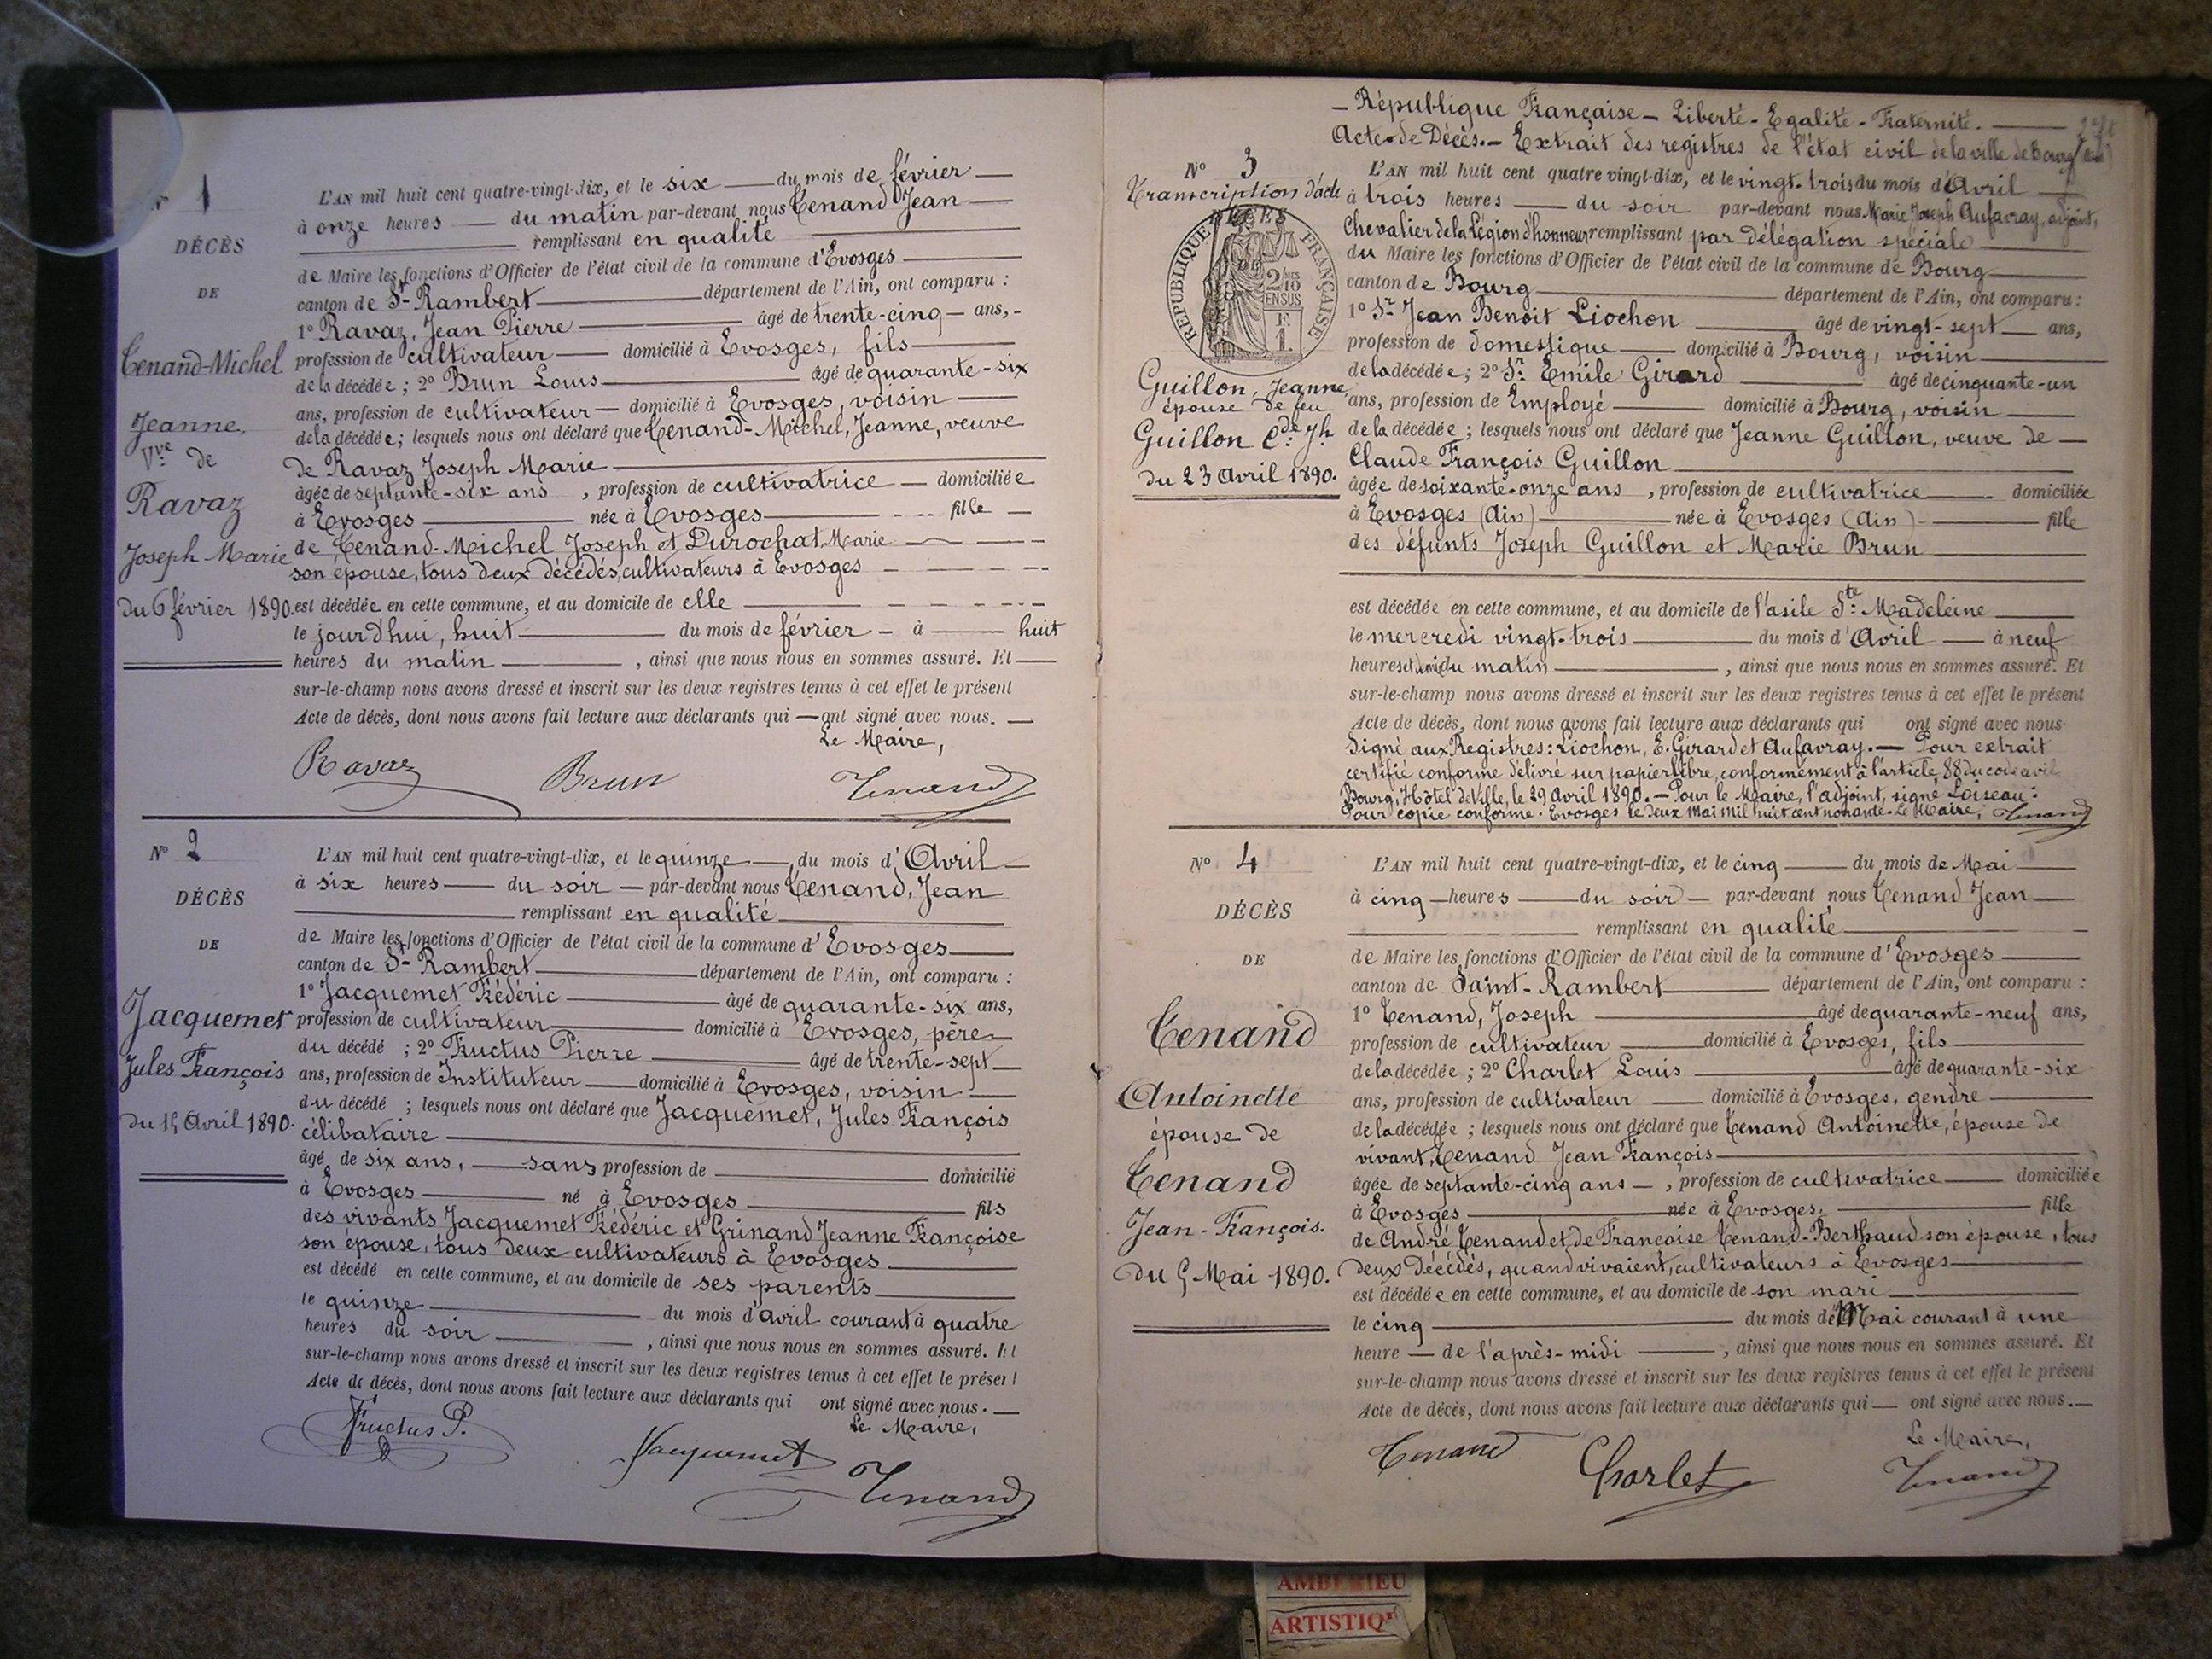 N° 1
DÉCÈS
DE
Tenand-Michel
Jeanne,
Vve de
Ravaz
Joseph Marie
du 6 février 1890.
L'AN mil huit cent quatre-vingt-dix, et le six du mois de février
à onze heures du matin par-devant nous Tenand Jean
remplissant en qualité
de Maire les fonctions d'Officier de l'état civil de la commune d'Evosges
canton de St-Rambert département de l'Ain, ont comparu :
1° Ravaz, Jean Pierre âgé de trente-cinq ans,
profession de cultivateur domicilié à Evosges, fils
de la décédée ; 2° Brun Louis âgé de quarante-six
ans, profession de cultivateur domicilié à Evosges, voisin
de la décédée ; lesquels nous ont déclaré que Tenand-Michel, Jeanne, veuve
de Ravaz Joseph Marie
âgée de septante-six ans , profession de cultivatrice domiciliée
à Evosges née à Evosges fille
de Tenand-Michel Joseph et Durochat Marie
son épouse, tous deux décédés, cultivateurs à Evosges
est décédée en cette commune, et au domicile de elle
le jourd'hui, huit du mois de février à huit
heures du matin , ainsi que nous nous en sommes assuré. Et
sur-le-champ nous avons dressé et inscrit sur les deux registres tenus à cet effet le présent
Acte de décès, dont nous avons fait lecture aux déclarants qui ont signé avec nous.
Le Maire,
Ravaz Brun Tenand
N° 2
DÉCÈS
DE
Jacquemet
Jules François
du 15 Avril 1890.
L'AN mil huit cent quatre-vingt-dix, et le quinze du mois d'Avril
à six heures du soir par-devant nous Tenand, Jean
remplissant en qualité
de Maire les fonctions d'Officier de l'état civil de la commune d'Evosges
canton de St-Rambert département de l'Ain, ont comparu :
1° Jacquemet Frédéric âgé de quarante-six ans,
profession de cultivateur domicilié à Evosges, père
du décédé ; 2° Fructus Pierre âgé de trente-sept
ans, profession de Instituteur domicilié à Evosges, voisin
du décédé ; lesquels nous ont déclaré que Jacquemet, Jules François
célibataire
âgé de six ans, sans profession de domicilié
à Evosges né à Evosges fils
des vivants Jacquemet Frédéric et Grinand Jeanne Françoise
son épouse, tous deux cultivateurs à Evosges
est décédé en cette commune, et au domicile de ses parents
le quinze du mois d'avril courant à quatre
heures du soir , ainsi que nous nous en sommes assuré. Et
sur-le-champ nous avons dressé et inscrit sur les deux registres tenus à cet effet le présent
Acte de décès, dont nous avons fait lecture aux déclarants qui ont signé avec nous.
Le Maire,
Fructus P. Jacquemet Tenand
République Française - Liberté - Egalité - Fraternité.
Acte de Décès. - Extrait des registres de l'état civil de la ville de Bourg (Ain)
N° 3
Transcription d'acte
RÉPUBLIQUE FRANÇAISE
2/10 EN SUS
F. 1.
Guillon, Jeanne,
épouse de feu
Guillon Cde Jh
du 23 Avril 1890.
L'AN mil huit cent quatre vingt-dix, et le vingt-trois du mois d'Avril
à trois heures du soir par-devant nous Marie Joseph Aufavray, adjoint,
Chevalier de la Légion d'honneur remplissant par délégation spéciale
du Maire les fonctions d'Officier de l'état civil de la commune de Bourg
canton de Bourg département de l'Ain, ont comparu :
1° Sr Jean Benoit Liochon âgé de vingt-sept ans,
profession de domestique domicilié à Bourg, voisin
de la décédée ; 2° Sr Emile Girard âgé de cinquante-un
ans, profession de Employé domicilié à Bourg, voisin
de la décédée ; lesquels nous ont déclaré que Jeanne Guillon, veuve de
Claude François Guillon
âgée de soixante-onze ans , profession de cultivatrice domiciliée
à Evosges (Ain) née à Evosges (Ain) fille
des défunts Joseph Guillon et Marie Brun
est décédée en cette commune, et au domicile de l'asile Ste Madeleine
le mercredi vingt-trois du mois d'Avril à neuf
heures et demi du matin , ainsi que nous nous en sommes assuré. Et
sur-le-champ nous avons dressé et inscrit sur les deux registres tenus à cet effet le présent
Acte de décès, dont nous avons fait lecture aux déclarants qui ont signé avec nous
Signé aux Registres : Liochon, E. Girard et Aufavray. - Pour extrait
certifié conforme délivré sur papier libre, conformément à l'article 88 du code civil
Bourg, Hôtel de Ville, le 29 Avril 1890. - Pour le Maire, l'adjoint, signé Loiseau :
Pour copie conforme. Evosges le deux Mai mil huit cent nonante. Le Maire, Tenand
N° 4
DÉCÈS
DE
Tenand
Antoinette
épouse de
Tenand
Jean-François.
du 5 Mai 1890.
L'AN mil huit cent quatre-vingt-dix, et le cinq du mois de Mai
à cinq heures du soir par-devant nous Tenand Jean
remplissant en qualité
de Maire les fonctions d'Officier de l'état civil de la commune d'Evosges
canton de Saint-Rambert département de l'Ain, ont comparu :
1° Tenand, Joseph âgé de quarante-neuf ans,
profession de cultivateur domicilié à Evosges, fils
de la décédée ; 2° Charlet Louis âgé de quarante-six
ans, profession de cultivateur domicilié à Evosges, gendre
de la décédée ; lesquels nous ont déclaré que Tenand Antoinette, épouse de
vivant, Tenand Jean François
âgée de septante-cinq ans , profession de cultivatrice domiciliée
à Evosges née à Evosges, fille
de André Tenand et de Françoise Tenand-Berthaud son épouse, tous
deux décédés, quand vivaient, cultivateurs à Evosges
est décédée en cette commune, et au domicile de son mari
le cinq du mois de Mai courant à une
heure de l'après-midi , ainsi que nous nous en sommes assuré. Et
sur-le-champ nous avons dressé et inscrit sur les deux registres tenus à cet effet le présent
Acte de décès, dont nous avons fait lecture aux déclarants qui ont signé avec nous.
Le Maire,
Tenand Charlet Tenand
AMBERIEU
ARTISTIQ